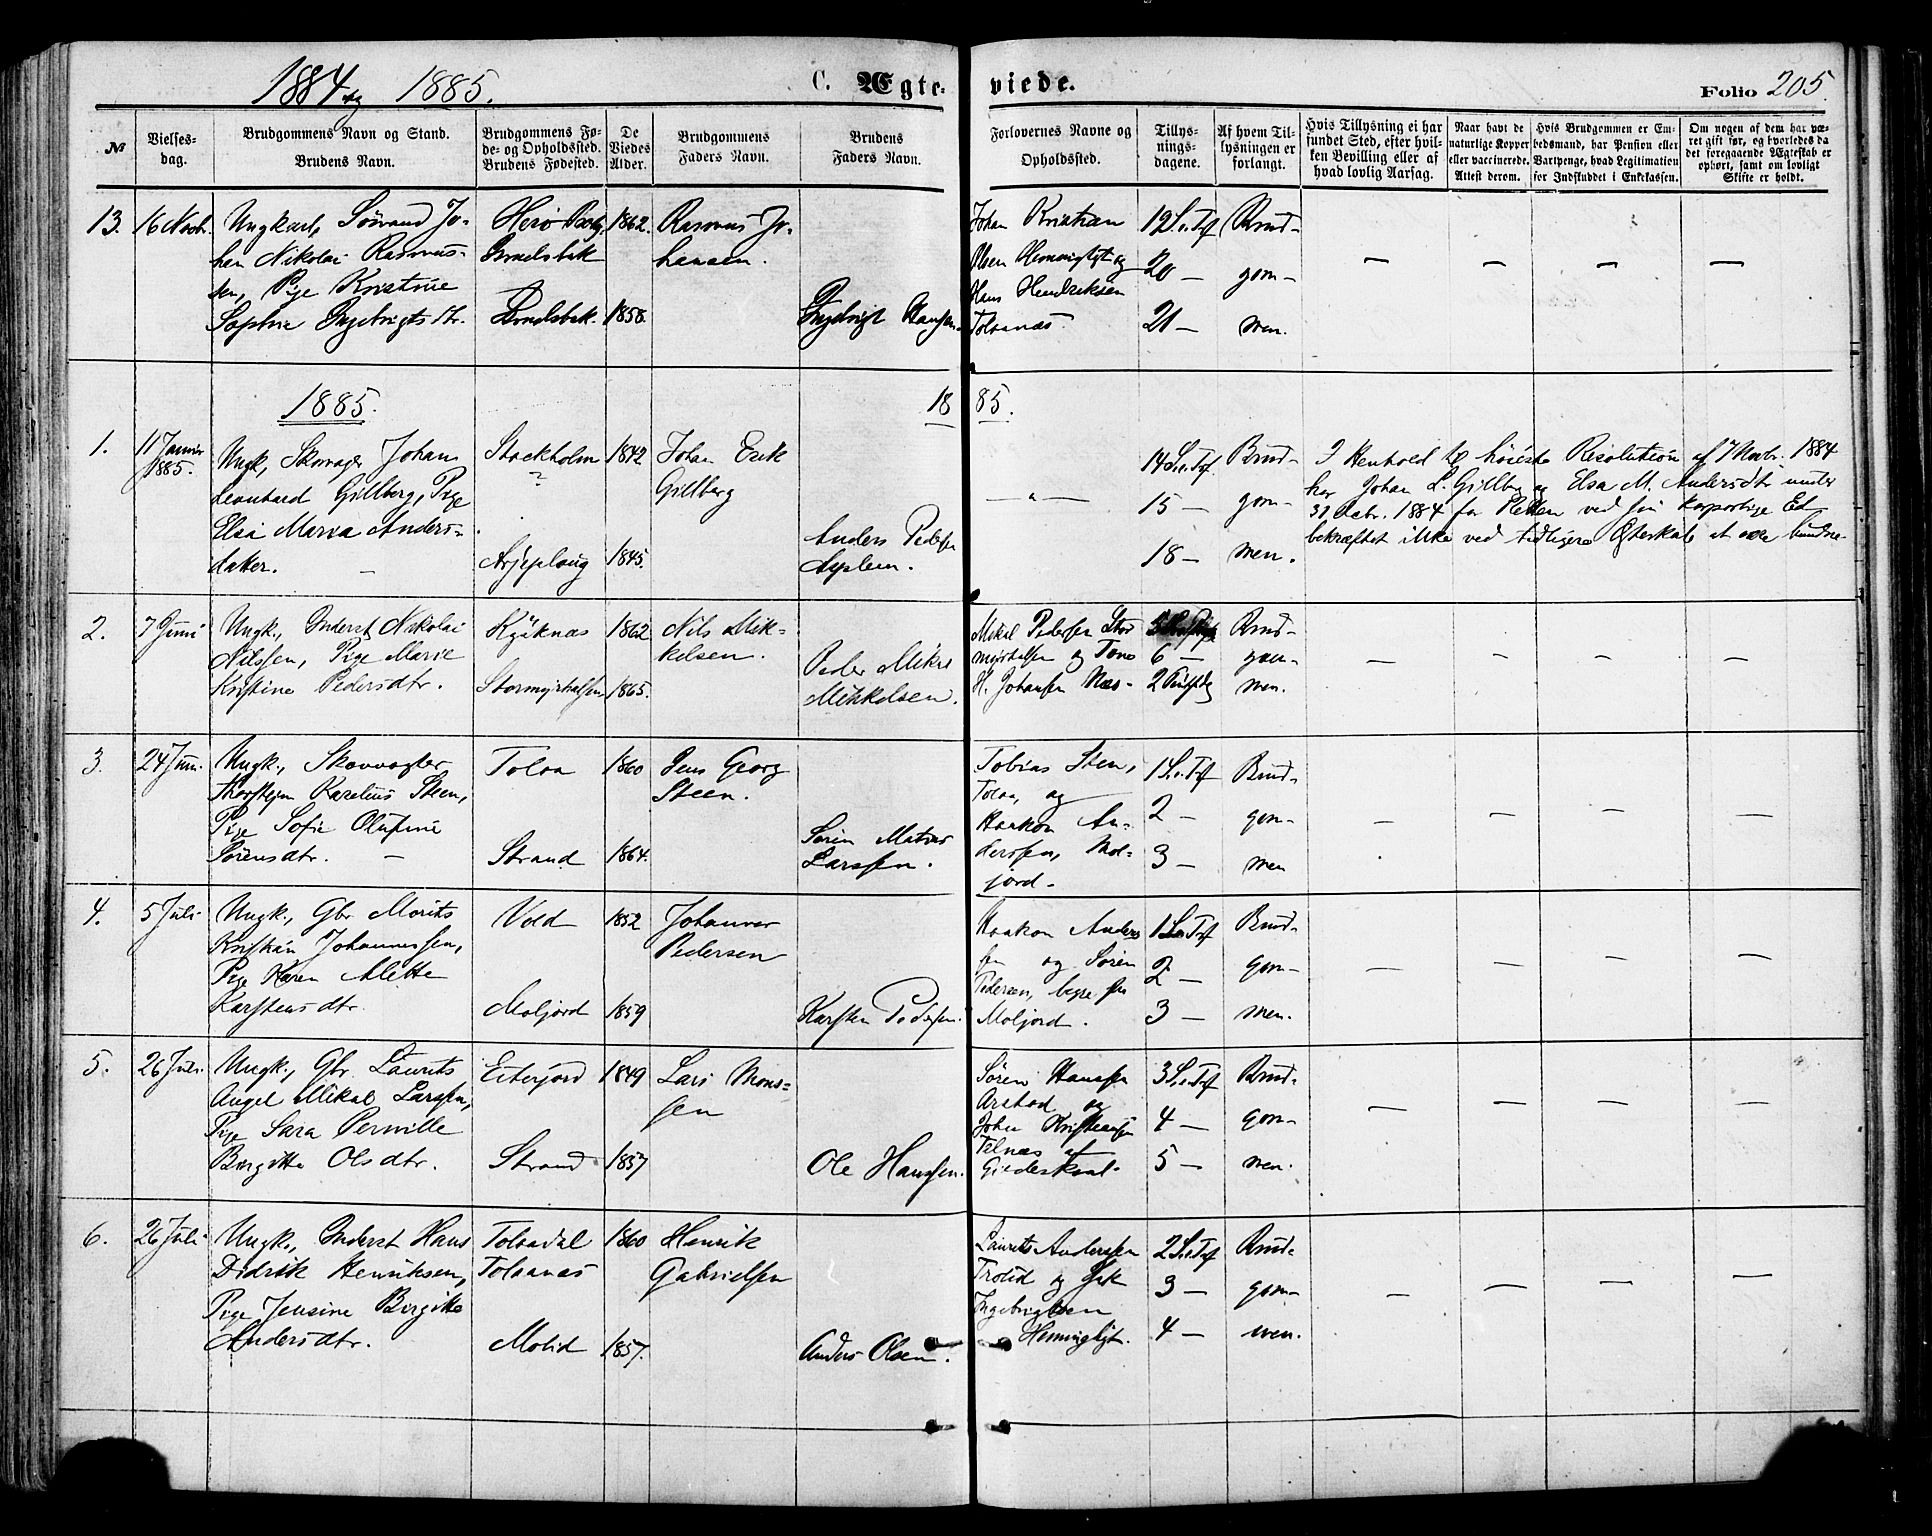 1884 og 1885.
C. Ægteviede.
Folio 205.
№
Vielsesdag.
Brudgommens Navn og Stand.
Brudens Navn.
Brudgommens Føde- og Opholdssted.
Brudens Fødested.
De Viedes Alder.
Brudgommens Faders Navn.
Brudens Faders Navn.
Forlovernes Navne og Opholdssted.
Tillysningsdagene.
Af hvem Tillysningen er forlangt.
Hvis Tillysning ei har fundet Sted, efter hvilken Bevilling eller af hvad lovlig Aarsag.
Naar havt de naturlige Kopper eller vaccinerede. Attest derom.
Hvis Brudgommen er Embedsmand, har Pension eller Vartpenge, hvad Legitimation for Indskuddet i Enkekassen.
Om nogen af dem har været gift før, og hvorledes da det foregaaende Ægteskab er ophørt, samt om lovligt Skifte er holdt.
13. 16 Novb.
Ungkarl, Sövand Jo-
han Nikolai Rasmus-
sen, Pige Kristine
Sophie Ingebrigtsdtr.
Herö
1862.
1858.
Rasmus Jo-
hansen.
Ingebrigt Hansen
Johan Kristian
Olsen Hemmingligt og
Hans Hendriksen
Tolaanæs.
19 S. e. Tf
20 —
21 —
Brud-
gom-
men.
1885.
18 85.
1. 11 Januar 1885.
Ungk, Skovager Johan
Leonhard Gillberg, Pige
Elsa Maria Anders-
datter. —
Stockholm
?
Arjeploug
1842
1845.
Johan Erik
Gillberg
Anders Pedersen
— " —
14 S. e. Tf.
15 —
18 —
Brud-
gom-
men.
I Henhold til høieste Resolution af 7 Novbr. 1884
har Johan L. Gillberg og Elsa M. Andersdtr under
31 Debr. 1884 for Retten ved sin korporlige Ed
bekræftet ikke ved tidligere Ægteskab at være bundne
2. 7 Juni
Ungk., Inderst Nikolai
Nilssen, Pige Marie
Kristine Pedersdtr.
Kjöknæs
1862
1865.
Nils Mik-
kelsen.
Peder Mikal
Mikkelsen.
Mikal Pedersen
og Tone
H. Johansen Næs-
6 —
2 Pintsedg
Brud-
gom-
men.
3. 24 Juni.
Ungk., Skovvogter
Thorstein Karelius Steen,
Pige Sofie Olufine
Sörensdtr. —
Tolaa
Strand
1860
1864.
Jens Georg
Steen.
Sören Matias
Larssen.
Tobias Sten,
Tolaa, og
Haakon An-
derssen, Mol-
jord.
1 S. e. Tf
2 —
3 —
Brud-
gom-
men
4. 5 Juli
Ungk., Gbr Morits
Kristian Johannessen,
Pige Karen Alette
Karstensdtr.
Vold
Moljord
1852
1859
Johannes
Pedersen
Karsten Pedersen.
Haakon Anders
sen og Sören
Pedersen, begge fra
Moljord.
1 S. e. Tf
2 —
3 —
Brud-
gom-
men.
5. 26 Juli.
Ungk., Gbr Laurits
Angel Mikal Larssen,
Pige Sara Pernille
Birgitte Olsdtr.
Eiterjord
Strand
1849
1857
Lars Mons-
sen
Ole Hanssen.
Sören Hanssen
Arstad og
John Kristiansen
Telnæs af
Gildeskaal.
3 S. e. Tf
4 —
5 —
Brud-
gom-
men.
6. 26 Juli
Ungk., Inderst Hans
Didrik Henriksen,
Pige Jensine Birgitte
Andersdtr.
Tolaadal
Tolaanæs
Molid
1860
1857.
Henrik
Gabrielsen
Anders Olsen.
Laurits Anderssen
Trolid og
Ingebrigtsen
Hemmingligt.
2 S. e. Tf
3 —
4 —
Brud-
gom-
men.